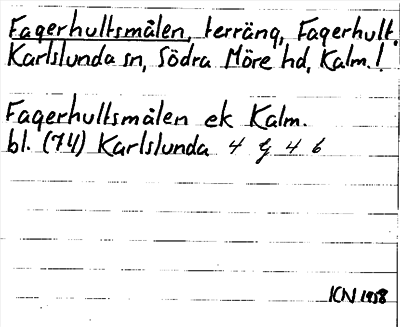 Fagerhultsmålen, terräng, Fagerhult.
Karlslunda sn, Södra Möre hd, Kalm. l
Fagerhultsmålen ek Kalm.
bl. (74) Karlslunda 4 G 4 b
KN 1958